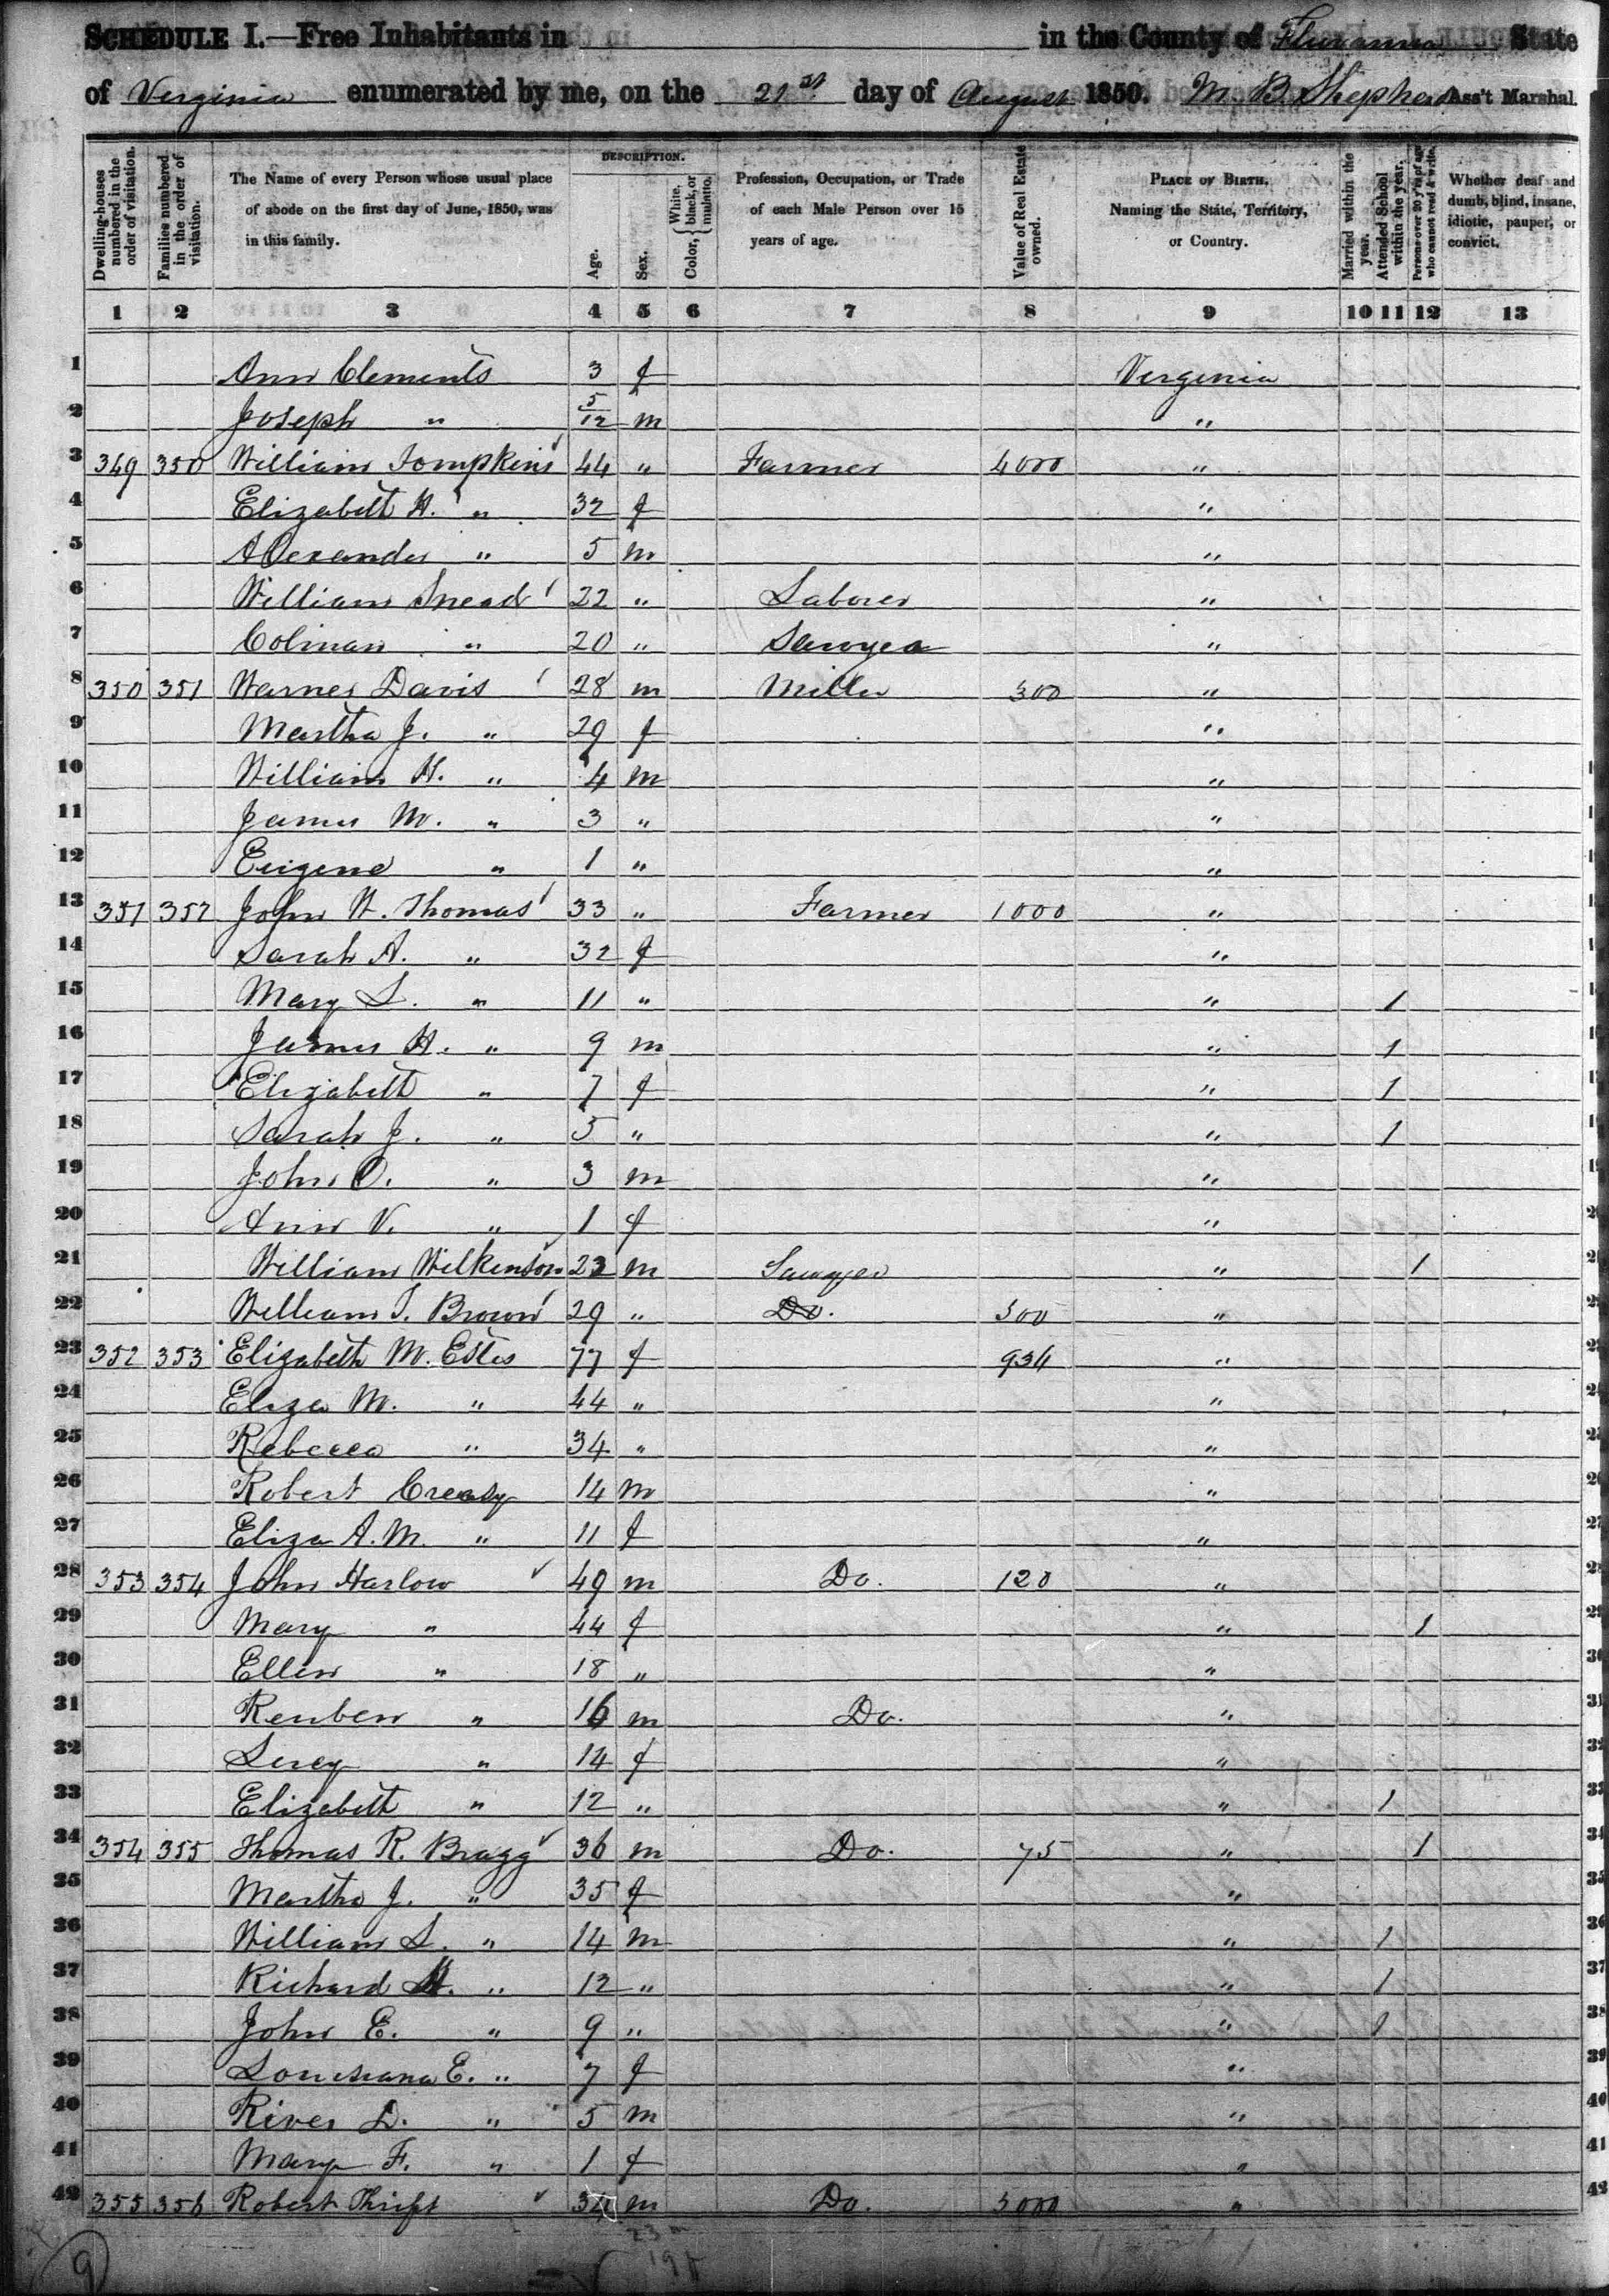 SCHEDULE I.—Free Inhabitants in in the County of Fluvanna State
of Virginia enumerated by me, on the 21st day of August 1850. M. B. Shepherd Ass't Marshal.
Dwelling-houses numbered in the order of visitation.
Families numbered in the order of visitation.
The Name of every Person whose usual place of abode on the first day of June, 1850, was in this family.
DESCRIPTION.
Age.
Sex.
Color, { White, black, or mulatto.
Profession, Occupation, or Trade of each Male Person over 15 years of age.
Value of Real Estate owned.
PLACE OF BIRTH. Naming the State, Territory, or Country.
Married within the year.
Attended School within the year.
Persons over 20 y'rs of age who cannot read & write.
Whether deaf and dumb, blind, insane, idiotic, pauper, or convict.
1 2 3 4 5 6 7 8 9 10 11 12 13
1 Ann Clements 3 f Virginia
2 Joseph " 5/12 m "
3 349 350 William Tompkins 44 " Farmer 4000 "
4 Elizabeth H. " 32 f "
5 Alexander " 5 m "
6 William Snead 22 " Laborer "
7 Colman " 20 " Sawyer "
8 350 351 Warner Davis 28 m Miller 300 "
9 Martha J. " 29 f "
10 William H. " 4 m "
11 James M. " 3 " "
12 Eugene " 1 " "
13 351 352 John W. Thomas 33 " Farmer 1000 "
14 Sarah A. " 32 f "
15 Mary L. " 11 " " 1
16 James H. " 9 m " 1
17 Elizabeth " 7 f " 1
18 Sarah J. " 5 " " 1
19 John O. " 3 m "
20 Ann V. " 1 f "
21 William Wilkinson 23 m Sawyer " 1
22 William T. Brown 29 " Do. 300 "
23 352 353 Elizabeth M. Estes 77 f 934 "
24 Eliza M. " 44 " "
25 Rebecca " 34 " "
26 Robert Creasy 14 m "
27 Eliza A. M. " 11 f "
28 353 354 John Harlow 49 m Do. 120 "
29 Mary " 44 f " 1
30 Ellen " 18 " "
31 Reuben " 16 m Do. "
32 " 14 f "
33 Elizabeth " 12 " " 1
34 354 355 Thomas R. Bragg 36 m Do. 75 " 1
35 Martha J. " 35 f "
36 William L. " 14 m " 1
37 Richard H. " 12 " " 1
38 John E. " 9 " " 1
39 Louisiana E. " 7 f "
40 River D. " 5 m "
41 Mary F. " 1 f "
42 355 356 Robert Thrift 34 m Do. 3000 "
23 m
9